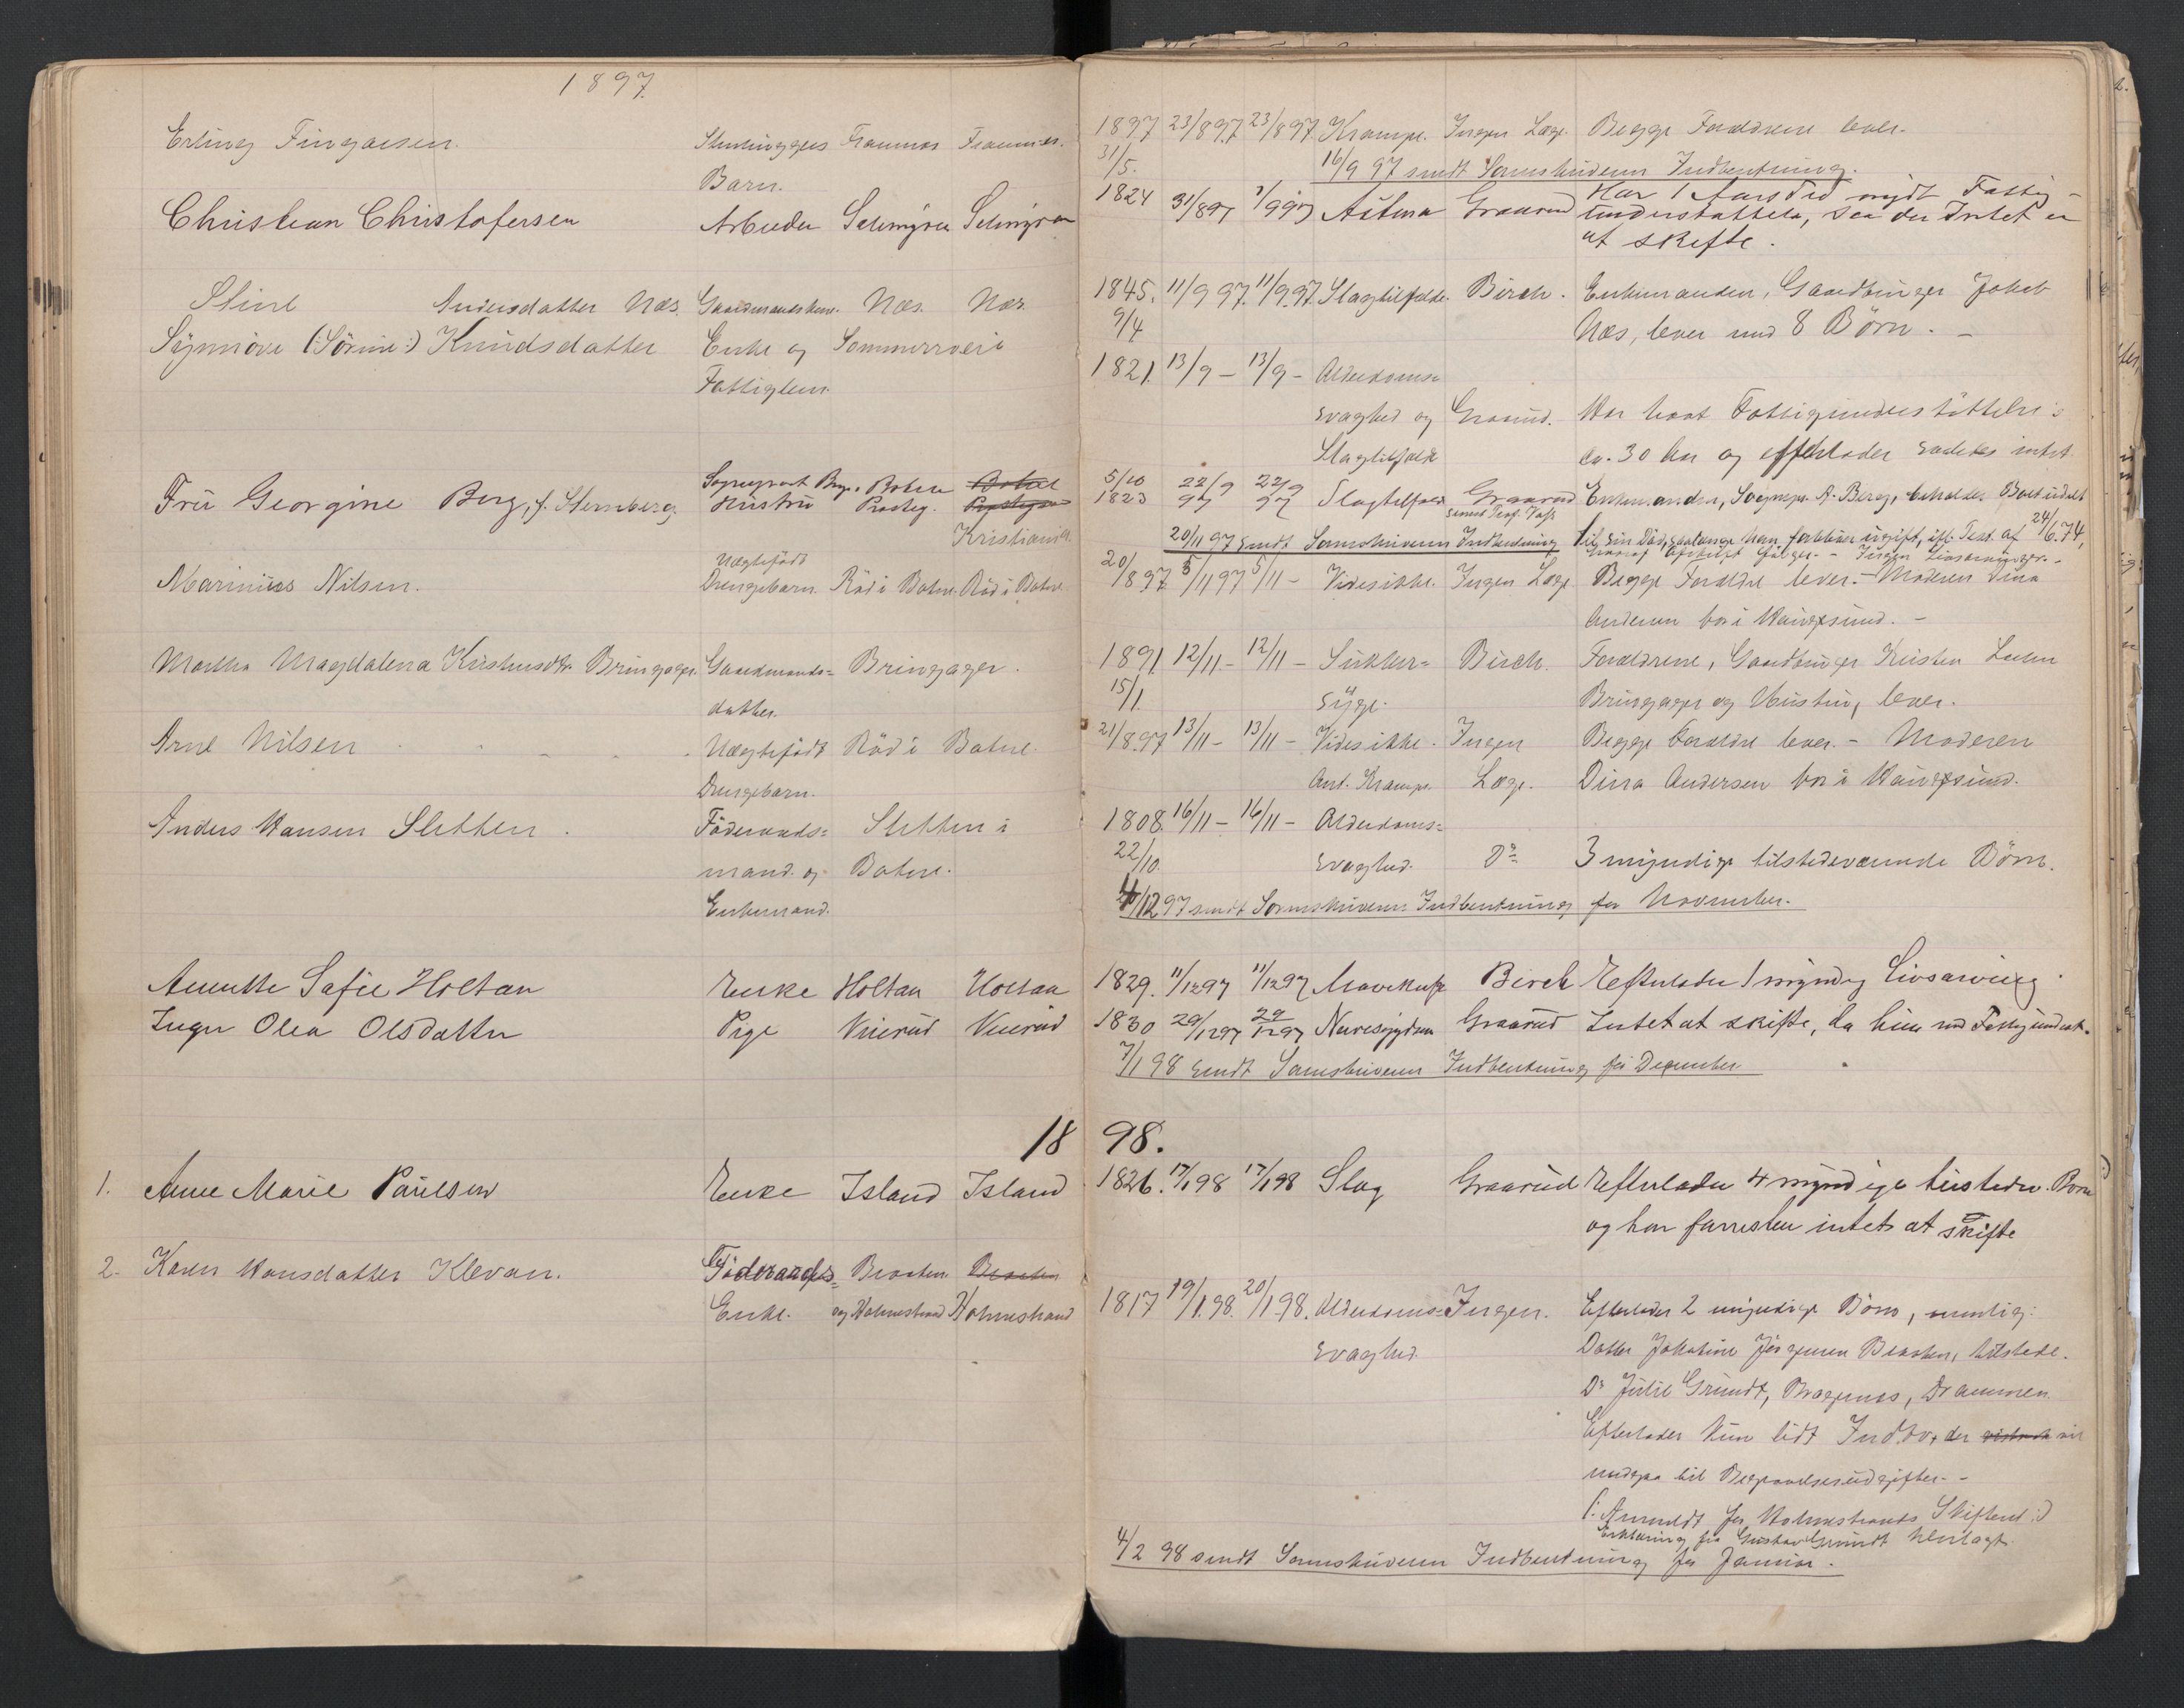 1897.
Erling Fingarsen. Barn. 1897 31/5. 23/8 97. 23/8 97. Krampe. Ingen Læge. Begge Forældrene lever.
16/9 97 sendt Sorenskriveren Indberetning.
Christian Christofersen Arbeider Selmyren Selmyren 1824 31/8 97 1/9 97 Astma Graarud Har 1 Aars Tid nydt Fattig-
understøttelse, saa der Intet er
at skifte.
Stine Andersdatter Næs. Gaardmandskone. Næs. Næs. 1845. 9/4 11/9 97. 11/9 97. Slagtilfælde. Birch. Enkemanden, Gaardbruger Jakob
Næs, lever med 8 Børn. -
Synnøve (: Sørine :) Knudsdatter Enke og Fattiglem. 1821. 13/9 - 13/9 - Alderdoms-
svaghed og Slagtilfælde Graarud. Har havt Fattigunderstøttelse i
ca. 30 Aar og efterlader saaledes intet.
Fru Georgine Berg, f. Sternberg. Sogneprest Bergs Hustru Botne Presteg. Botne Prestegaard Kristiania. 5/10 1823 22/9 97 22/9 97 Slagtilfælde Graarud Enkemanden, Sognepr. A. Berg, beholder Boet udelt
20/11 97 sendt Sorenskriveren Indberetning til sin Død, saalænge han forbliver ugift, ifl. Test. af 24/6 74,
hvoraf Afskrift følger. - Ingen Livsarvinger. -
Marinius Nilsen. Uægtefødt Drengebarn. Rød i Botne. Rød i Botne. 20/8 97 5/11 97 5/11 - Vides ikke. Ingen Læge Begge Forældre lever. - Moderen Dina
Andersen bor i Haugsund. -
Martha Magdalena Kristensdtr. Bringager. Gaardmands-
datter. Bringager. 1891. 15/1. 12/11 - 12/11 - Sukker-
syge. Birch. Forældrene, Gaardbruger Kristen
Bringager og Hustru, lever.
Arne Nilsen Uægtefødt Drengebarn. Rød i Botne. 21/8 97 13/11 - 13/11 - Vides ikke. Ant. Krampe. Ingen Læge. Begge Forældre lever. - Moderen
Dina Andersen bor i Haugsund.
Anders Hansen Sletten. Føderaads-
mand og
Enkemand. Sletten i
Botne. 1808. 22/10. 16/11 - 16/11 - Alderdoms-
svaghed. Do 3 myndige tilstedeværende Børn.
4/12 97 sendt Sorenskriveren Indberetning for November.
Annette Sofie Holtan Enke Holtan Holtan 1829. 11/12 97 11/12 97 Mavekræft Birch Efterlader 1 myndig Livsarving.
Inger Olea Olsdatter Pige Vinerud Vinerud 1830 29/12 97 29/12 97 Nyresygdom Graarud Intet at skifte, da hun nød Fattigunderst.
7/1 98 sendt Sorenskriveren Indberetning for December
1898.
1. Anne Marie Paulsen Enke Island Island 1826. 17/1 98 17/1 98 Slag Graarud Efterlader 4 myndige tilstedev. Børn
og har forresten intet at skifte
2. Karen Hansdatter Klevan. Føderaads-
Enke. Braaten
og Holmestrand Braaten Holmestrand 1817 19/1 98. 20/1 98. Alderdoms-
svaghed. Ingen. Efterlader 2 myndige Børn, nemlig:
Datter Jakobine Jørgensen Braaten, tilstede.
Do Julie Grundt, Bragernes, Drammen.
Efterlader kun lidt Indbo, der vil
medgaa til Begravelsesudgifter. -
(: Anmeldt for Holmestrands Skifteret :)
Erklæring fra Gustav Grundt vedlagt.
4/2 98 sendt Sorenskriveren Indberetning for Januar.